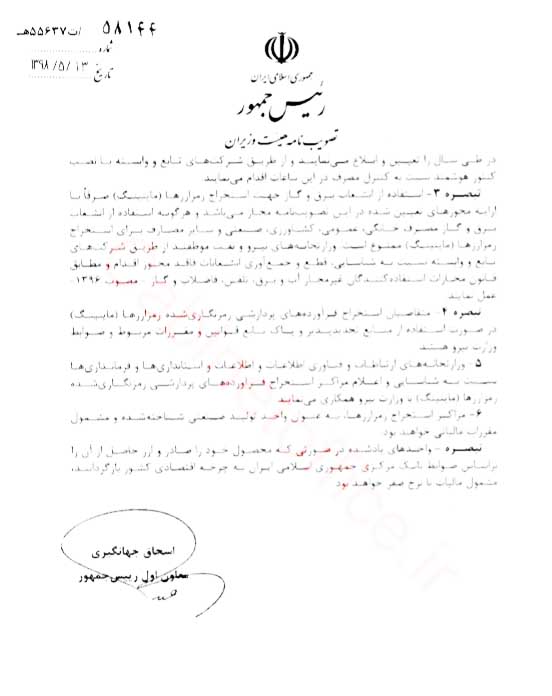 ۵۸۱۴۴ /ت۵۵۶۳۷هـ
شماره
تاریخ ۱۳۹۸/۵/۱۳
جمهوری اسلامی ایران
رئیس جمهور
تصویب نامه هیئت وزیران
در طی سال را تعیین و ابلاغ می‌نمایند و از طریق شرکت‌های تابع و وابسته با نصب
کنتور هوشمند نسبت به کنترل مصرف در این ساعات اقدام می‌نمایند
تبصره ۳- استفاده از انشعاب برق و گاز جهت استخراج رمزارزها (ماینینگ) صرفاً با
ارایه مجوزهای تعیین شده در این تصویب‌نامه مجاز می‌باشد و هرگونه استفاده از انشعاب
برق و گاز مصرف خانگی، عمومی، کشاورزی، صنعتی و سایر مصارف برای استخراج
رمزارزها (ماینینگ) ممنوع است. وزارتخانه‌های نیرو و نفت موظفند از طریق شرکت‌های
تابع و وابسته نسبت به شناسایی، قطع و جمع‌آوری انشعابات فاقد مجوز اقدام و مطابق
قانون مجازات استفاده‌کنندگان غیرمجاز آب و برق، تلفن، فاضلاب و گاز - مصوب ۱۳۹۶-
عمل نمایند
تبصره ۴- متقاضیان استخراج فرآورده‌های پردازشی رمزنگاری‌شده رمزارزها (ماینینگ)
در صورت استفاده از منابع تجدیدپذیر و پاک تابع قوانین و مقررات مربوط و ضوابط
وزارت نیرو هستند
۵- وزارتخانه‌های ارتباطات و فناوری اطلاعات و اطلاعات و استانداری‌ها و فرمانداری‌ها
نسبت به شناسایی و اعلام مراکز استخراج فرآورده‌های پردازشی رمزنگاری‌شده
رمزارزها (ماینینگ) با وزارت نیرو همکاری می‌نمایند
۶- مراکز استخراج رمزارزها، به عنوان واحد تولید صنعتی شناخته‌شده و مشمول
مقررات مالیاتی خواهند بود
تبصره - واحدهای یادشده در صورتی که محصول خود را صادر و ارز حاصل از آن را
براساس ضوابط بانک مرکزی جمهوری اسلامی ایران به چرخه اقتصادی کشور بازگردانند،
مشمول مالیات با نرخ صفر خواهند بود
اسحاق جهانگیری
معاون اول رییس‌جمهور